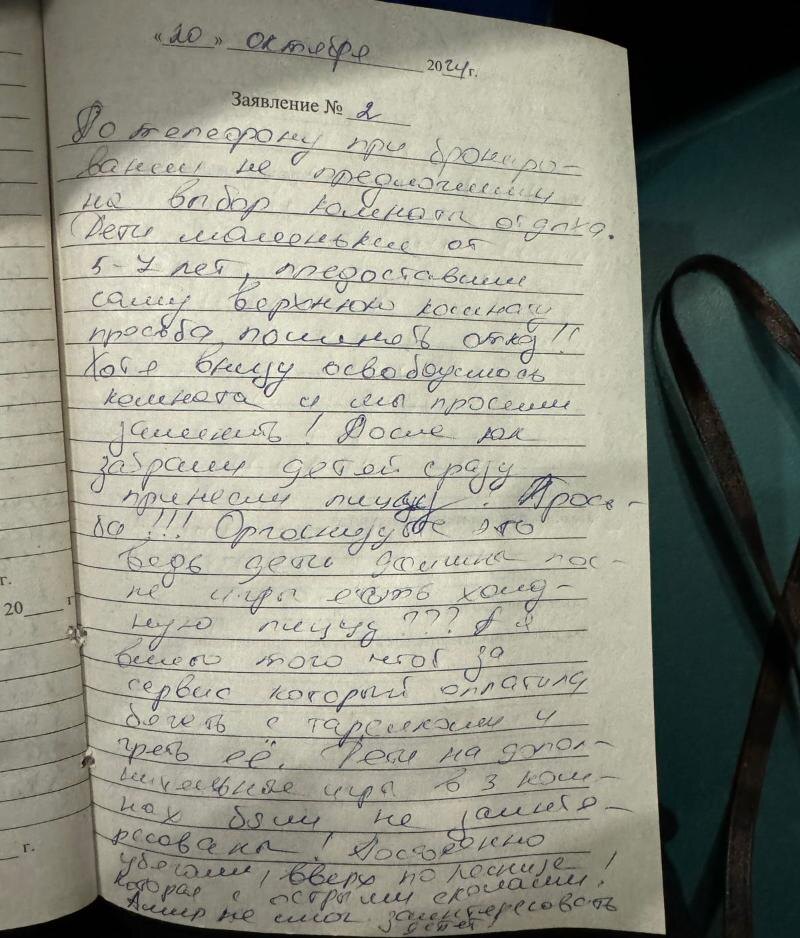 «20» октября 2024г.
Заявление № 2
По телефону при брониро-
вании не предложили
на выбор комнаты отдыха.
Дети маленькие от
5-7 лет, предоставили
саму верхнюю комнату
просьба поменять отказ!!
Хотя внизу освободилось
комната и мы просили
заменить! После как
забрали детей сразу
принесли пиццу. Прось-
ба!!! Организуйте это
ведь дети должны пос-
ле игры есть холод-
ную пиццу??? А я
вместо того чтоб за
сервис который оплатила
бегать с тарелками и
греть её. Дети на допол-
нительные игры в 3 ком-
нах были не заинте-
ресованы! Постоянно
убегали, вверх по леснице
которая с острыми сколами!
Амир не смог заинтересовать
детей
г.
20 г
г.